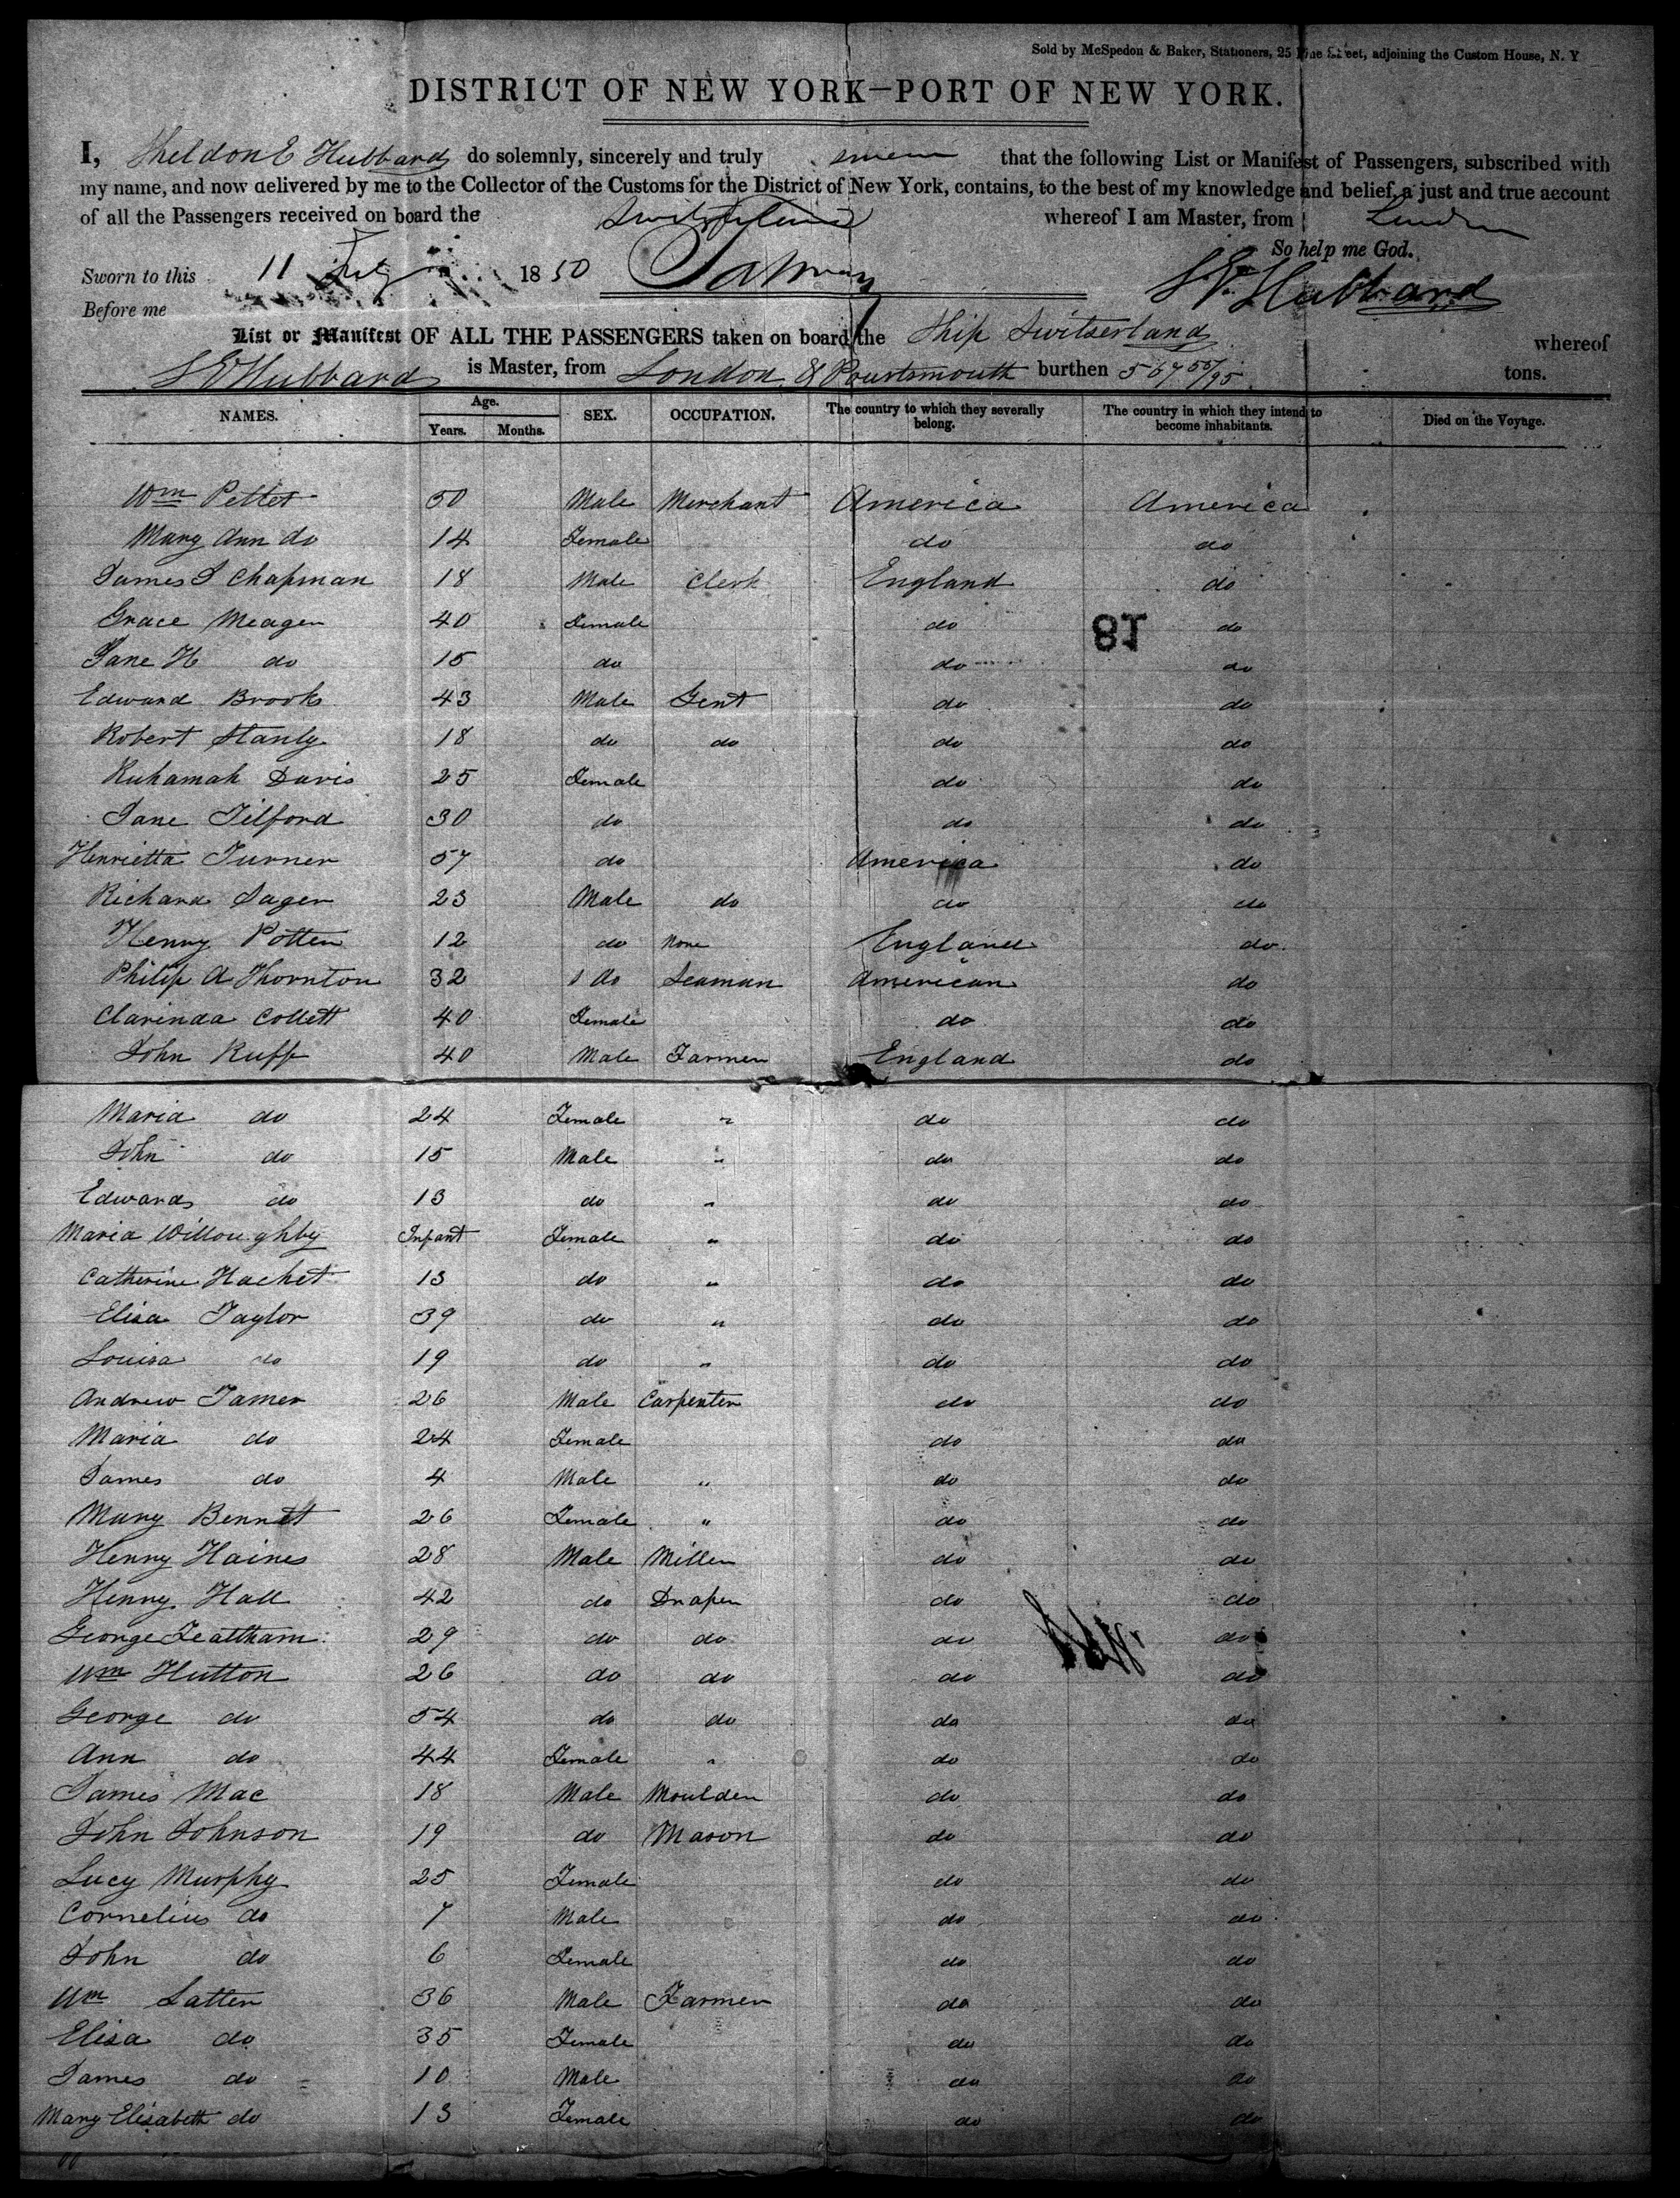 Sold by McSpedon & Baker, Stationers, 25 Pine Street, adjoining the Custom House, N. Y
DISTRICT OF NEW YORK—PORT OF NEW YORK.
I, Sheldon E Hubbard do solemnly, sincerely and truly swear that the following List or Manifest of Passengers, subscribed with
my name, and now delivered by me to the Collector of the Customs for the District of New York, contains, to the best of my knowledge and belief, a just and true account
of all the Passengers received on board the Switzerland whereof I am Master, from London
So help me God.
Sworn to this 11 July 1850
S E Hubbard
Before me
List or Manifest OF ALL THE PASSENGERS taken on board the Ship Switserland whereof
S E Hubbard is Master, from London & Pourtsmouth burthen 567 tons.
NAMES. Age. Years. Months. SEX. OCCUPATION. The country to which they severally belong. The country in which they intend to become inhabitants. Died on the Voyage.
Wm Pettet 50 Male Merchant America America
Mary Ann do 14 Female do do
James S Chapman 18 Male Clerk England do
81
Grace Meager 40 Female do do
Jane H do 15 do do do
Edward Brooks 43 Male Gent do do
Robert Stanly 18 do do do do
Ruhamah Davis 25 Female do do
Jane Tilford 30 do do do
Henrietta Turner 57 do America do
Richard Sager 23 Male do do do
Henry Potter 12 do None England do
Philip A Thornton 32 do Seaman American do
Clarinda Collett 40 Female do do
John Ruff 40 Male Farmer England do
Maria do 24 Female " do do
John do 15 Male " do do
Edward do 13 do " do do
Maria Willoughby Infant Female " do do
Catherine Hachet 13 do " do do
Elisa Taylor 39 do " do do
Louisa do 19 do " do do
Andrew Tamer 26 Male Carpenter do do
Maria do 24 Female do do
James do 4 Male " do do
Mary Bennett 26 Female " do do
Henry Haines 28 Male Miller do do
Henry Hall 42 do Draper do do
George Feattham 29 do do do do
Wm Hutton 26 do do do do
George do 54 do do do do
Ann do 44 Female " do do
James Mac 18 Male Moulder do do
John Johnson 19 do Mason do do
Lucy Murphy 25 Female do do
Cornelius do 7 Male do do
John do 6 Female do do
Wm Latter 36 Male Farmer do do
Elisa do 35 Female do do
James do 10 Male do do
Mary Elisabeth do 13 Female do do